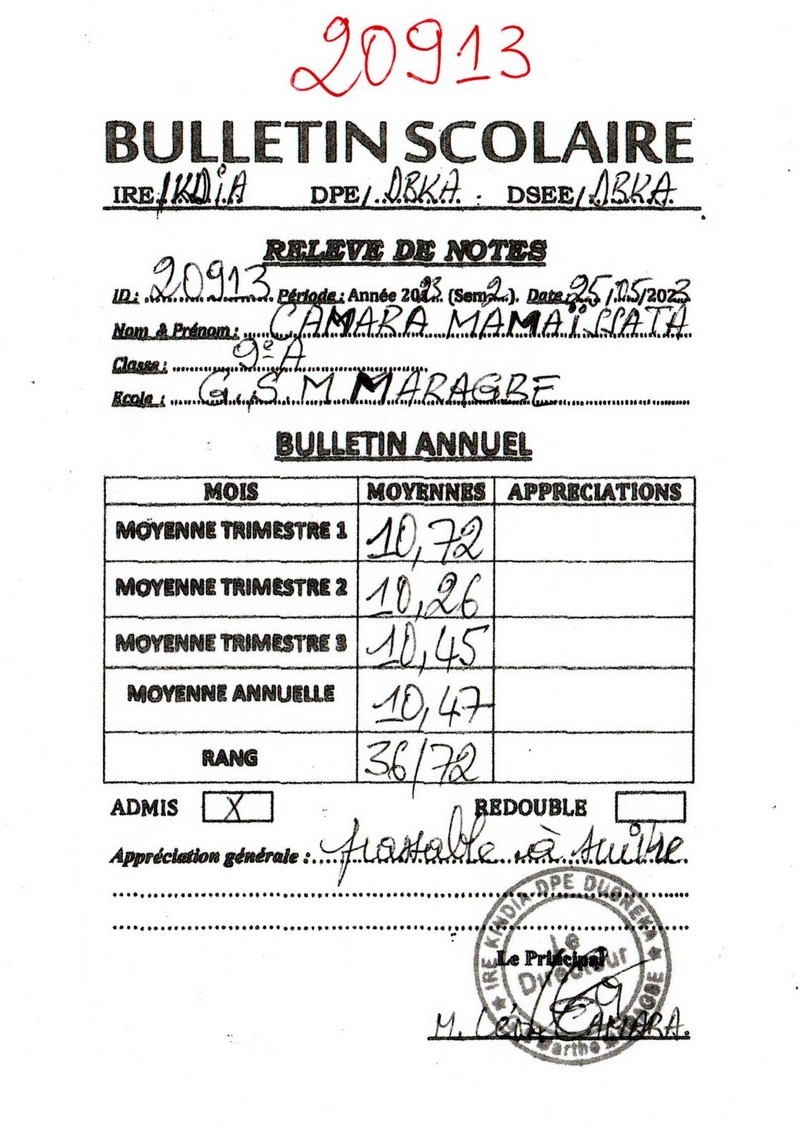 20913
BULLETIN SCOLAIRE
IRE/KDiA DPE/DBKA. DSEE/DBKA.
RELEVE DE NOTES
ID: 20913 Période: Année 2023 (Sem2). Date: 25/05/2023
Nom & Prénom: CAMARA MAMAÏSSATA
Classe: 9e A
Ecole: G.S.M MARAGBE
BULLETIN ANNUEL
MOIS MOYENNES APPRECIATIONS
MOYENNE TRIMESTRE 1 10,72
MOYENNE TRIMESTRE 2 10,26
MOYENNE TRIMESTRE 3 10,45
MOYENNE ANNUELLE 10,47
RANG 36/72
ADMIS X REDOUBLE
Appréciation générale: passable à suivre
IRE KINDIA DPE DUBREKA
Le Principal
Le Directeur
M. CAMARA.
Marthe